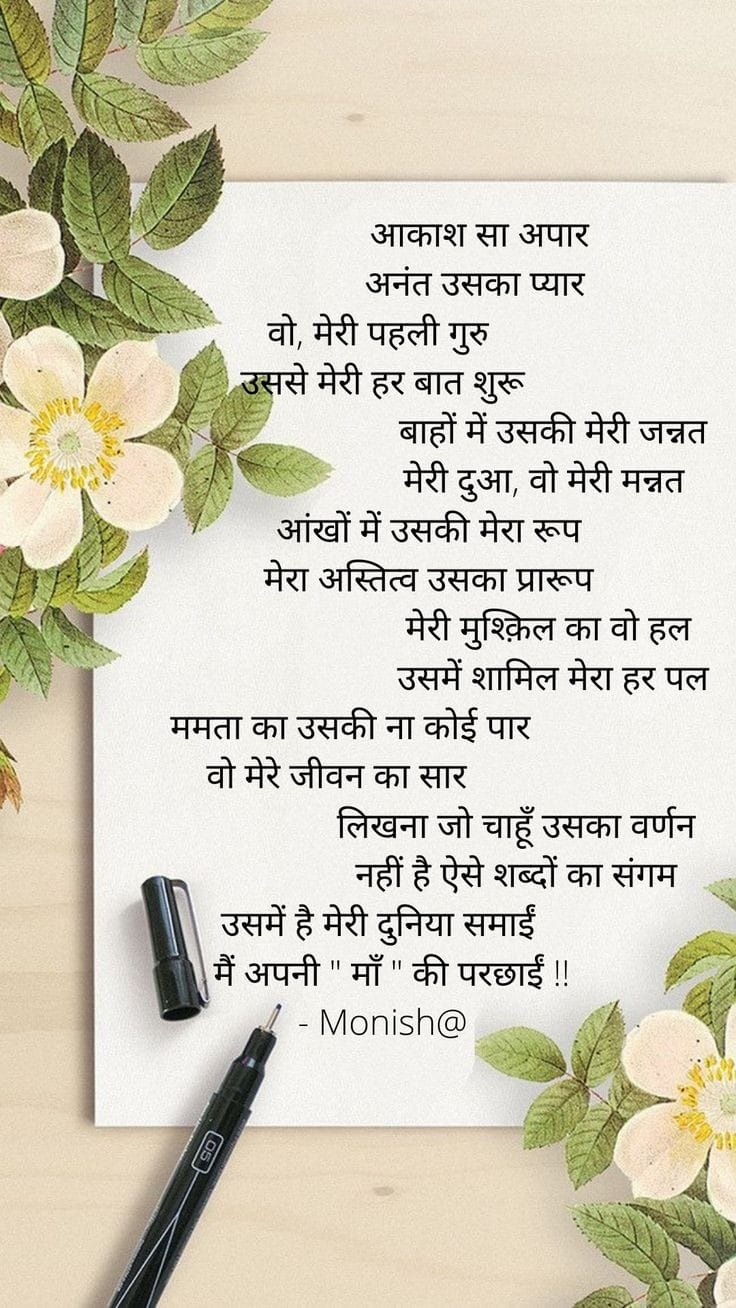 आकाश सा अपार
अनंत उसका प्यार
वो, मेरी पहली गुरु
उससे मेरी हर बात शुरू
बाहों में उसकी मेरी जन्नत
मेरी दुआ, वो मेरी मन्नत
आंखों में उसकी मेरा रूप
मेरा अस्तित्व उसका प्रारूप
मेरी मुश्क़िल का वो हल
उसमें शामिल मेरा हर पल
ममता का उसकी ना कोई पार
वो मेरे जीवन का सार
लिखना जो चाहूँ उसका वर्णन
नहीं है ऐसे शब्दों का संगम
उसमें है मेरी दुनिया समाईं
मैं अपनी " माँ " की परछाईं !!
- Monish@
05